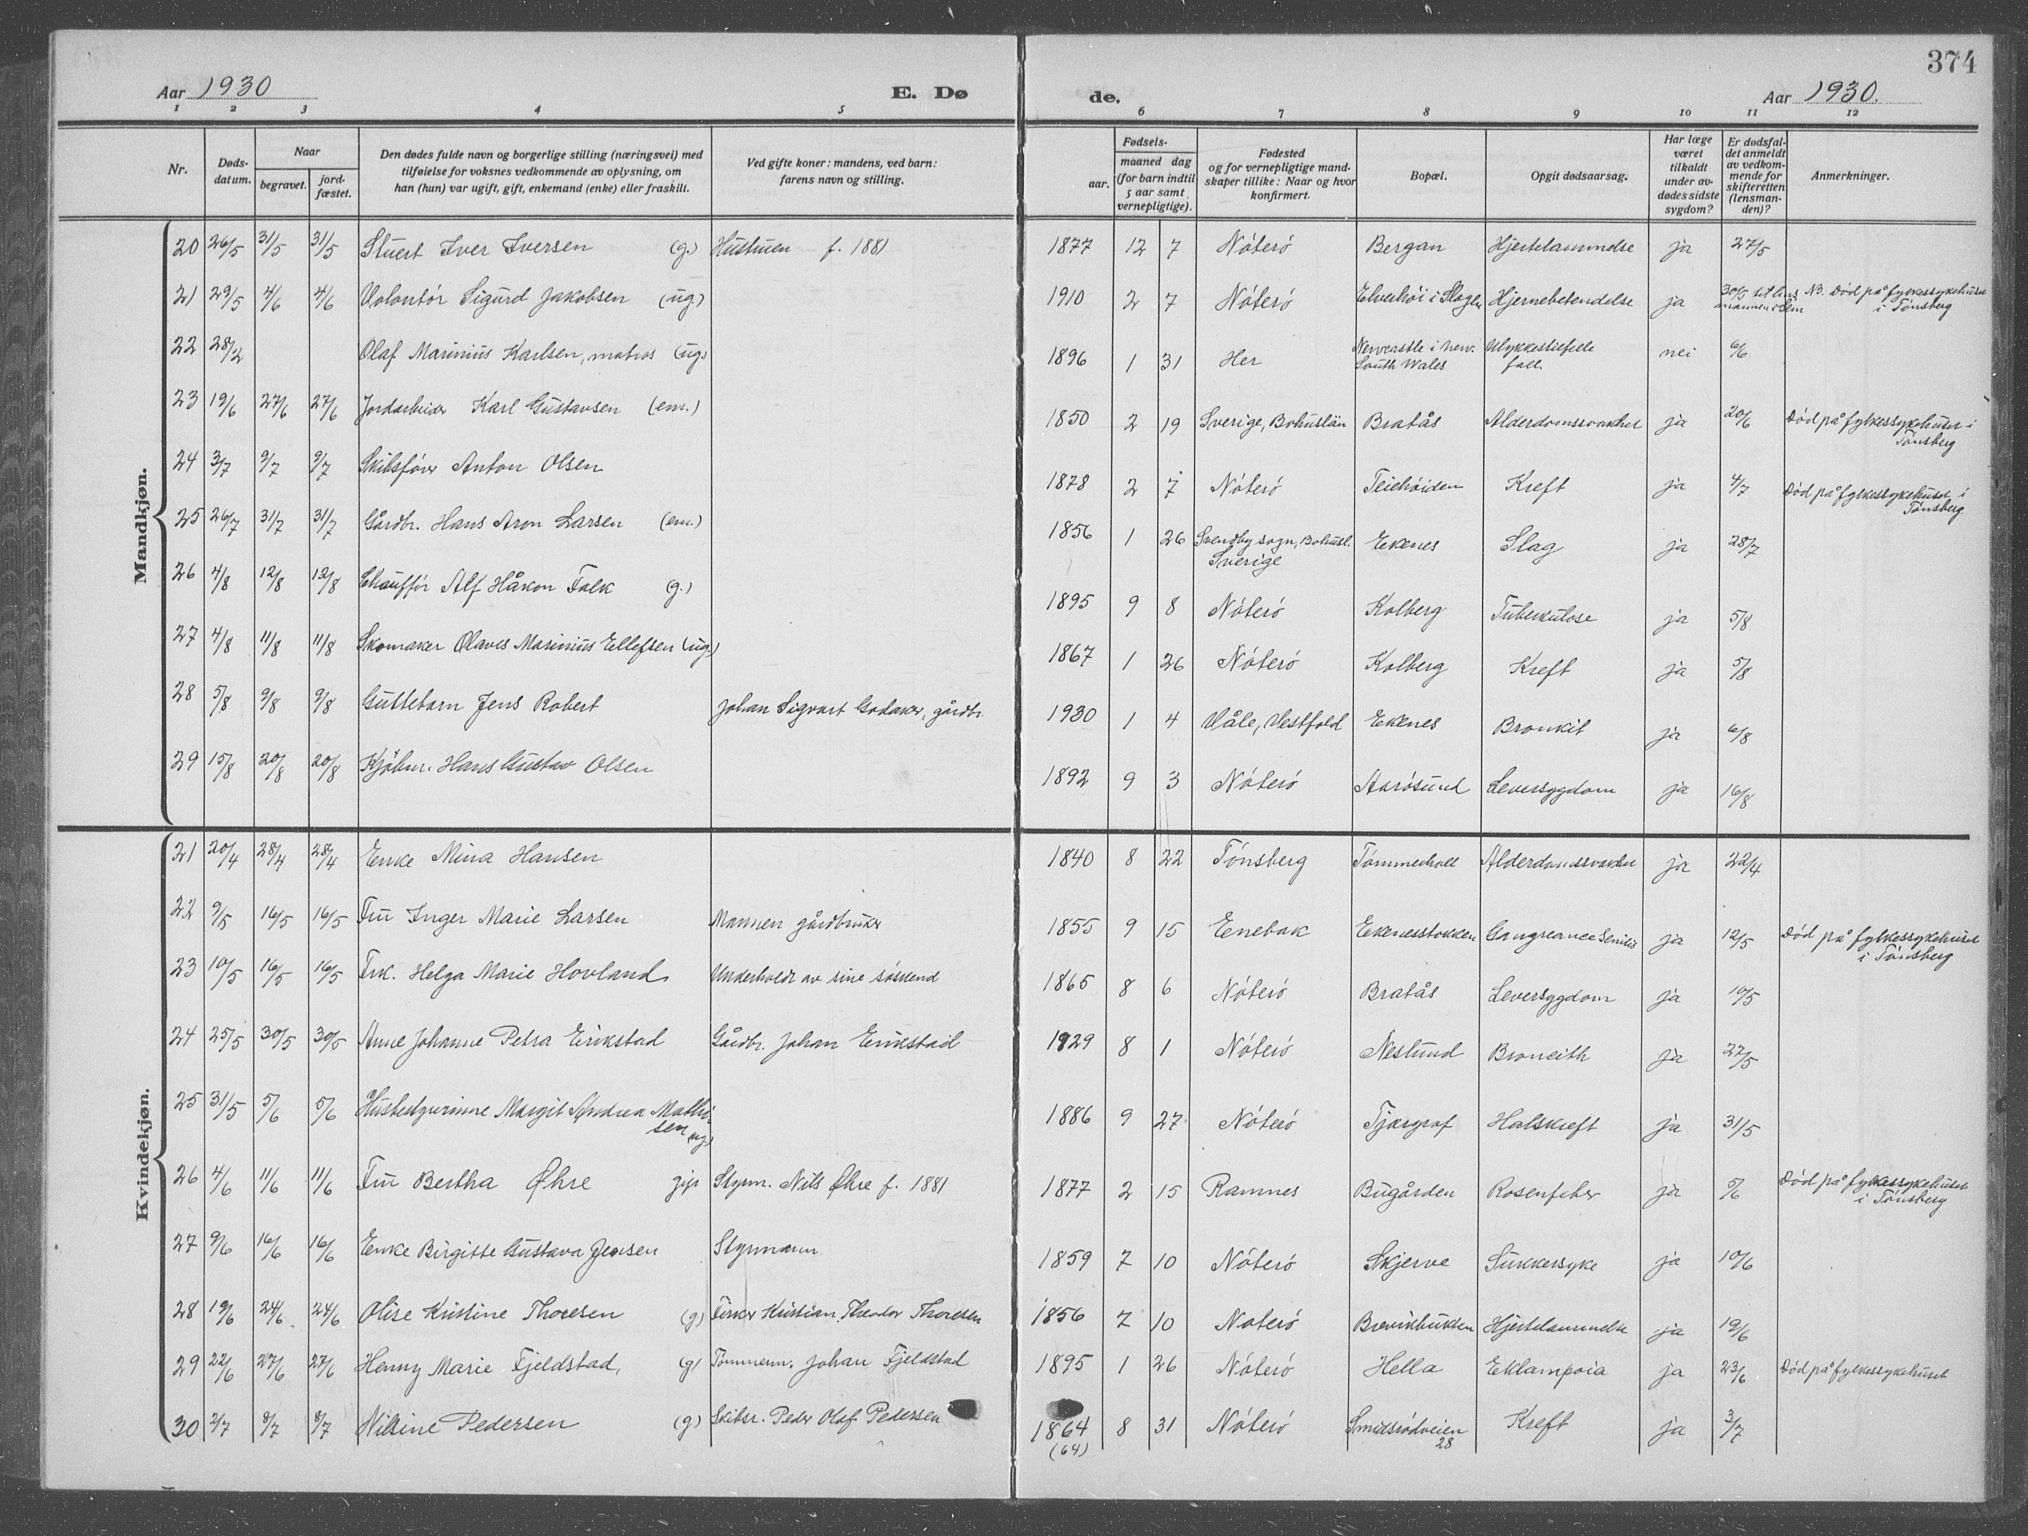 374
Aar 1930 E. Dø de. Aar 1930.
1 2 3 4 5 6 7 8 9 10 11 12
Nr. Døds-datum. Naar begravet. jord-fæstet. Den dødes fulde navn og borgerlige stilling (næringsvei) med tilføielse for voksnes vedkommende av oplysning, om han (hun) var ugift, gift, enkemand (enke) eller fraskilt. Ved gifte koner: mandens, ved barn: farens navn og stilling. Fødsels- aar. maaned dag (for barn indtil 5 aar samt vernepligtige). Fødested og for vernepligtige mandskaper tillike: Naar og hvor konfirmert. Bopæl. Opgit dødsaarsag. Har læge været tilkaldt under avdødes sidste sygdom? Er dødsfaldet anmeldt av vedkommende for skifteretten (lensmanden)? Anmerkninger.
Mandkjøn.
20 26/5 31/5 31/5 Stuert Iver Iversen (g.) Hustruen f. 1881 1877 12 7 Nøterø Bergan Hjertelammelse ja 27/5
21 29/5 4/6 4/6 Volontør Sigurd Jakobsen (ug) 1910 2 7 Nøterø Elverhøi i Slagen Hjernebetendelse ja 30/5 til lensmannen i Sem N3. Død på fylkessykehuset i Tønsberg
22 28/2 Olaf Marinius Karlsen, matros (ug) 1896 1 31 Her Newcastle i New. South Wales Ulykkestilfelle fall. nei 6/6
23 19/6 27/6 27/6 Jordarbeider Karl Gustavsen (em.) 1850 2 19 Sverige, Bohuslän Bratås Alderdomssvakhet ja 20/6 Død på fylkessykehuset i Tønsberg
24 3/7 9/7 9/7 Skibsfører Anton Olsen 1878 2 7 Nøterø Teiehøiden Kreft ja 4/7 Død på fylkessykehuset i Tønsberg
25 26/7 31/7 31/7 Gårdbr. Hans Aron Larsen (em.) 1856 1 26 Svendby sogn, Bohusl. Sverige Ekenes Slag ja 28/7
26 4/8 12/8 12/8 Chauffør Alf Håkon Falk (g.) 1895 9 8 Nøterø Kolberg Tuberkulose ja 5/8
27 4/8 11/8 11/8 Skomaker Olaves Marinius Ellefsen (ug) 1867 1 26 Nøterø Kolberg Kreft ja 5/8
28 5/8 9/8 9/8 Guttebarn Jens Robert Johan Sigvart Godaker, gårdbr. 1930 1 4 Våle, Vestfold Ekenes Bronkit ja 6/8
29 15/8 20/8 20/8 Kjøbm. Hans Gustav Olsen 1892 9 3 Nøterø Aarøsund Leversygdom ja 16/8
Kvindekjøn.
21 20/4 28/4 28/4 Enke Mina Hansen 1840 8 22 Tønsberg Tømmerholt Alderdomssvakhet ja 22/4
22 9/5 16/5 16/5 Fru Inger Marie Larsen Mannen gårdbruker 1855 9 15 Enebak Ekenesstokken Gangreance Senilis ja 12/5 Død på fylkessykehuset i Tønsberg
23 10/5 16/5 16/5 Frk. Helga Marie Hovland Underholdt av sine søskend 1865 8 6 Nøterø Bratås Leversygdom ja 10/5
24 25/5 30/5 30/5 Anne Johanne Petra Erikstad Gårdbr. Johan Erikstad 1929 8 1 Nøterø Neslund Broncith ja 27/5
25 31/5 5/6 5/6 Husbestyrerinne Margit Andrea Mathisen (ug) 1886 9 27 Nøterø Tjærgraf Halskreft ja 31/5
26 4/6 11/6 11/6 Fru Bertha Øhre gift Styrm. Nils Øhre f. 1881 1877 2 15 Ramnes Bugården Rosenfeber ja 5/6 Død på fylkessykehuset i Tønsberg
27 9/6 16/6 16/6 Enke Birgitte Gustava Jensen Styrmann 1859 7 10 Nøterø Skjerve Sukkersyke ja 10/6
28 19/6 24/6 24/6 Olise Kristine Thoresen (g) Fisker Kristian Theodor Thoresen 1856 7 10 Nøterø Brevikbukten Hjertelammelse ja 19/6
29 22/6 27/6 27/6 Henny Marie Fjeldstad, (g) Tømmerm. Johan Fjeldstad 1895 1 26 Nøterø Hella Eklampsia ja 23/6 Død på fylkessykehuset
30 2/7 8/7 8/7 Nilsine Pedersen (g) Skibsr. Peder Olaf Pedersen 1864 (64) 8 31 Nøterø Smidsrødveien 28 Kreft ja 3/7